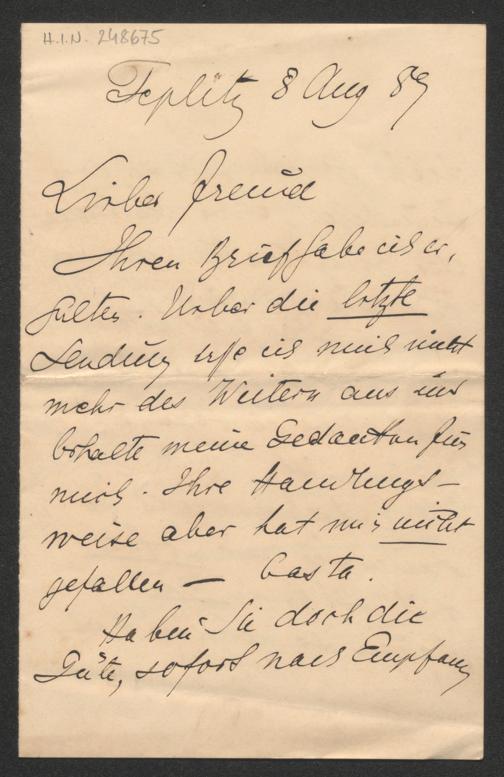 H.I.N. 248675
Teplitz 8 Aug 89
Lieber Freund
Ihren Brief habe ich er,
halten. Ueber die letzte
Sendung lasse ich mich nicht
mehr des Weitern aus und
behalte meine Gedanken für
mich. Ihre Handlungs-
weise aber hat mir nicht
gefallen — basta.
Haben Sie doch die
Güte, sofort nach Empfang